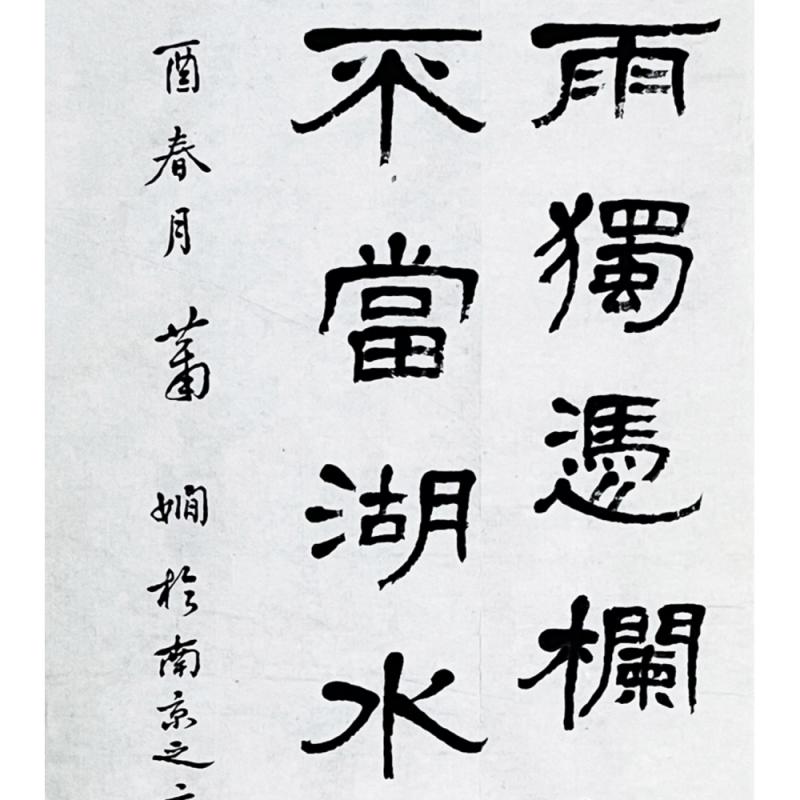 雨獨憑欄
不當湖水
酉春月蕭嫻於南京之